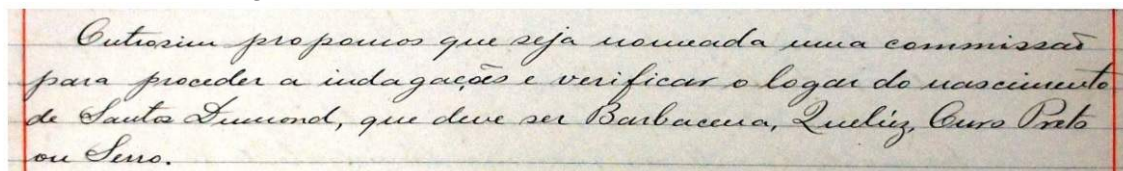 Outrosim propomos que seja nomeada uma commissaõ
para proceder a indagações e verificar o logar do nascimento
de Santos Dumond, que deve ser Barbacena, Queluz, Ouro Preto
ou Serro.